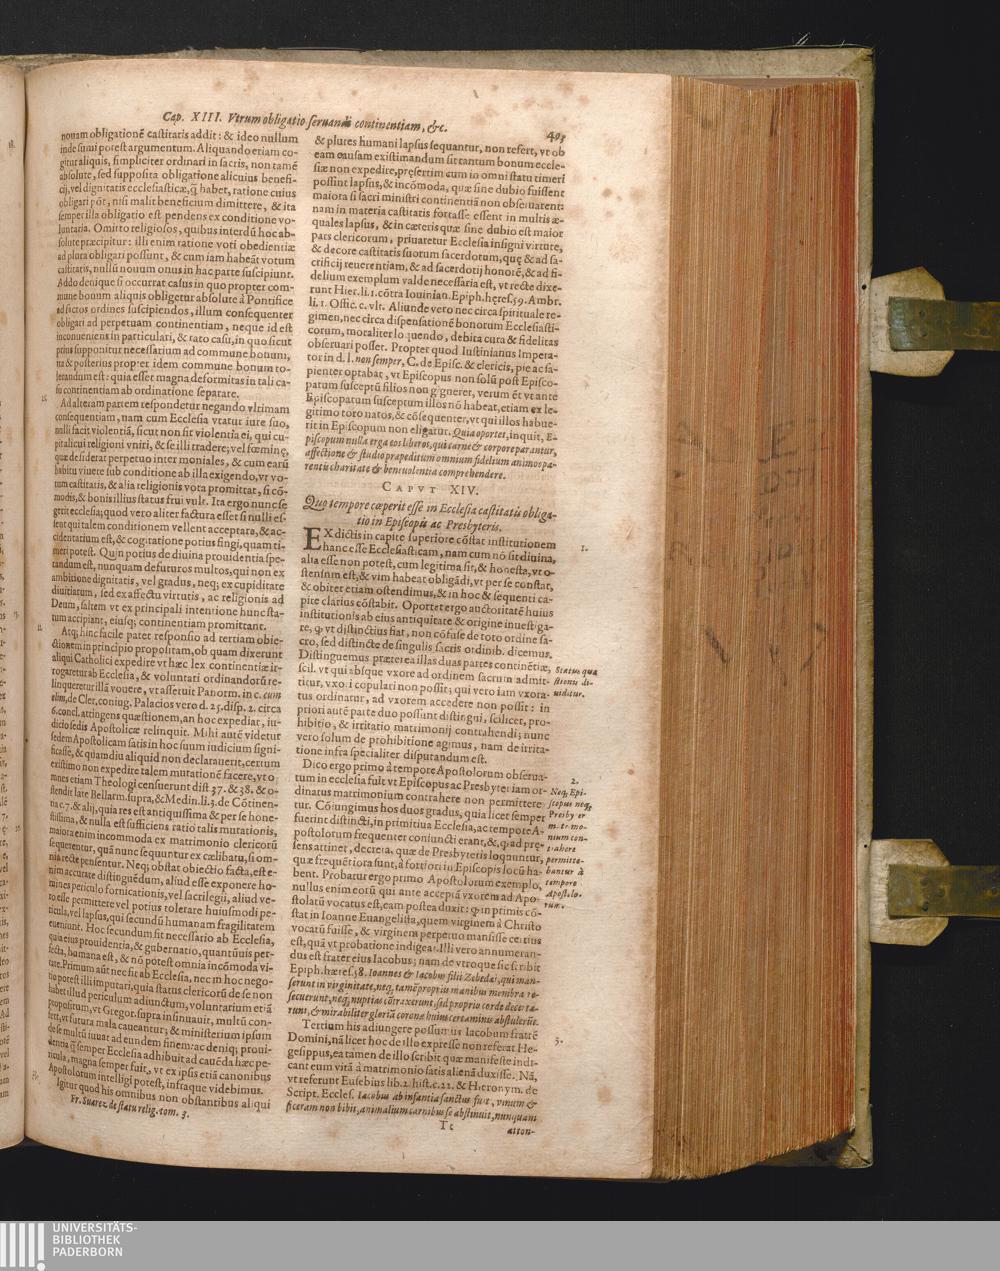 Cap. XIII. Vtrum obligatio seruandi continentiam, &c.
405
nouam obligationē castitatis addit: & ideo nullum
inde sumi potest argumentum. Aliquando etiam co-
gitur aliquis, simpliciter ordinari in sacris, non tamē
absolute, sed supposita obligatione alicuius benefi-
cij, vel dignitatis ecclesiasticæ, q̃ habet, ratione cuius
obligari pōt, nisi malit beneficium dimittere, & ita
semper illa obligatio est pendens ex conditione vo-
luntaria. Omitto religiosos, quibus interdū hoc ab-
solute præcipitur: illi enim ratione voti obedientiæ
ad plura obligari possunt, & cum iam habeāt votum
castitatis, nullū nouum onus in hac parte suscipiunt.
Addo denique si occurrat casus in quo propter com-
mune bonum aliquis obligetur absolute à Pontifice
ad sacros ordines suscipiendos, illum consequenter
obligari ad perpetuam continentiam, neque id est
inconueniens in particulari, & raro casu, in quo sicut
prius supponitur necessarium ad commune bonum,
ita & posterius propter idem commune bonum to-
lerandum est: quia esset magna deformitas in tali ca-
su continentiam ab ordinatione separare.
Ad alteram partem respondetur negando vltimam
consequentiam, nam cum Ecclesia vtatur iure suo,
nulli facit violentiā, sicut non fit violentia ei, qui cu-
pit alicui religioni vniri, & se illi tradere; vel fœminę,
quæ desiderat perpetuo inter moniales, & cum earū
habitu viuere sub conditione ab illa exigendo, vt vo-
tum castitatis, & alia religionis vota promittat, si cō-
modis, & bonis illius status frui vult. Ita ergo nunc se
gerit ecclesia; quod vero aliter factura esset si nulli es-
sent qui talem conditionem vellent acceptare, & ac-
cidentarium est, & cogitatione potius fingi, quam ti-
meri potest. Quin potius de diuina prouidentia spe-
randum est, nunquam defuturos multos, qui non ex
ambitione dignitatis, vel gradus, neq; ex cupiditate
diuitiarum, sed ex affectu virtutis, ac religionis ad
Deum, saltem vt ex principali intentione hunc sta-
tum accipiant, eiusq; continentiam promittant.
Atq; hinc facile patet responsio ad tertiam obie-
ctionem in principio propositam, ob quam dixerunt
aliqui Catholici expedire vt hæc lex continentiæ ir-
rogaretur ab Ecclesia, & voluntati ordinandorū re-
linqueretur illā vouere, vt asseruit Panorm. in c. cum
olim, de Cler. coniug. Palacios vero d. 25. disp. 2. circa
6. concl. attingens quæstionem, an hoc expediat, iu-
dicio sedis Apostolicæ relinquit. Mihi autē videtur
sedem Apostolicam satis in hoc suum iudicium signi-
ficasse, & quamdiu aliquid non declarauerit, certum
existimo non expedire talem mutationē facere, vt o-
mnes etiam Theologi censuerunt dist 37. & 38. & o-
stendit late Bellarm. supra, & Medin. li. 3. de Cōtinen-
tia c. 7. & alij, quia res est antiquissima & per se hone-
stissima, & nulla est sufficiens ratio talis mutationis,
maiora enim incommoda ex matrimonio clericorū
sequerentur, quā nunc sequuntur ex cælibatu, si om-
nia recte pensentur. Neq; obstat obiectio facta, est e-
nim accurate distinguēdum, aliud esse exponere ho-
mines periculo fornicationis, vel sacrilegij, aliud ve-
ro esse permittere vel potius tolerare huiusmodi pe-
ricula, vel lapsus, qui secundū humanam fragilitatem
eueniunt. Hoc secundum fit necessario ab Ecclesia,
quia eius prouidentia, & gubernatio, quantūuis per-
fecta, humana est, & nō potest omnia incōmoda vi-
tare. Primum aūt nec fit ab Ecclesia, nec in hoc nego-
tio potest illi imputari, quia status clericorū de se non
habet illud periculum adiunctum, voluntarium etiā
propositum, vt Gregor. supra insinuauit, multū con-
fert, vt futura mala caueantur; & ministerium ipsum
de se multū iuuat ad eundem finem: ac deniq; proui-
dentia q̃ semper Ecclesia adhibuit ad cauēda hæc pe-
ricula, magna semper fuit, vt ex ipsis etiā canonibus
Apostolorum intelligi potest, infraque videbimus.
Igitur quod his omnibus non obstantibus aliqui
Fr. Suarez de statu relig. tom. 3.
& plures humani lapsus sequantur, non refert, vt ob
eam causam existimandum sit tantum bonum eccle-
siæ non expedire, præsertim cum in omni statu timeri
possint lapsus, & incōmoda, quæ sine dubio fuissent
maiora si sacri ministri continentiā non obseruarent:
nam in materia castitatis fortasse essent in multis æ-
quales lapsus, & in cæteris quæ sine dubio est maior
pars clericorum, priuaretur Ecclesia insigni virtute,
& decore castitatis suorum sacerdotum, quę & ad sa-
crificij reuerentiam, & ad sacerdotij honorē, & ad fi-
delium exemplum valde necessaria est, vt recte dixe-
runt Hier. li. 1. cōtra Iouinian. Epiph. hęres. 59. Ambr.
li. 1. Offic. c. vlt. Aliunde vero nec circa spirituale re-
gimen, nec circa dispensationē bonorum Ecclesiasti-
corum, moraliter loquendo, debita cura & fidelitas
obseruari posset. Propter quod Iustinianus Impera-
tor in d. l. non semper, C. de Episc. & clericis, pie ac sa-
pienter optabat, vt Episcopus non solū post Episco-
patum susceptū filios non gigneret, verum ēt vt ante
Episcopatum susceptum illos nō habeat, etiam ex le-
gitimo toro natos, & cōsequenter, vt qui illos habue-
rit in Episcopum non eligatur. Quia oportet, inquit, E-
piscopum nulla erga eos liberos, qui carne & corpore parantur,
affectione & studio præpeditum omnium fidelium animos pa-
rentis charitate & beneuolentia comprehendere.
CAPVT XIV.
Quo tempore cœperit esse in Ecclesia castitatis obliga-
tio in Episcopis ac Presbyteris.
EX dictis in capite superiore cōstat institutionem
hanc esse Ecclesiasticam, nam cum nō sit diuina,
alia esse non potest, cum legitima sit, & honesta, vt o-
stensum est, & vim habeat obligādi, vt per se constat,
& obiter etiam ostendimus, & in hoc & sequenti ca-
pite clarius cōstabit. Oportet ergo auctoritatē huius
institutionis ab eius antiquitate & origine inuestiga-
re, q̃ vt distinctius fiat, non cōfuse de toto ordine sa-
cro, sed distincte de singulis sacris ordinib. dicemus.
Distinguemus præterea illas duas partes continētiæ,
scil. vt qui absque vxore ad ordinem sacrum admit-
titur, vxori copulari non possit; qui vero iam vxora-
tus ordinatur, ad vxorem accedere non possit: in
priori autē parte duo possunt distingui, scilicet, pro-
hibitio, & irritatio matrimonij contrahendi; nunc
vero solum de prohibitione agimus, nam de irrita-
tione infra specialiter disputandum est.
Dico ergo primo à tempore Apostolorum obserua-
tum in ecclesia fuit vt Episcopus ac Presbyteri iam or-
dinatus matrimonium contrahere non permittere-
tur. Cōiungimus hos duos gradus, quia licet semper
fuerint distincti, in primitiua Ecclesia, ac tempore A-
postolorum frequenter coniuncti erant, &, q̃ ad præ-
sens attinet, decreta, quæ de Presbyteris loquuntur,
quæ frequētiora sunt, à fortiori in Episcopis locū ha-
bent. Probatur ergo primo Apostolorum exemplo,
nullus enim eorū qui ante acceptā vxorem ad Apo-
stolatū vocatus est, eam postea duxit: q̃ in primis cō-
stat in Ioanne Euangelista, quem virginem à Christo
vocatū fuisse, & virginem perpetuo mansisse certius
est, quā vt probatione indigeat. Illi vero annumeran-
dus est frater eius Iacobus; nam de vtroque sic scribit
Epiph. hæres. 58. Ioannes & Iacobus filij Zebedæi, qui man-
serunt in virginitate, neq; tamē proprijs manibus membra re-
secuerunt, neq; nuptias cōtraxerunt, sed proprio corde decerta-
runt, & mirabiliter gloriā coronæ huius certaminis abstulerūt.
Tertium his adiungere possumus Iacobum fratrē
Domini, nā licet hoc de illo expresse non referat He-
gesippus, ea tamen de illo scribit quæ manifeste indi-
cant eum vitā à matrimonio satis alienā duxisse. Nā,
vt referunt Eusebius lib. 2. hist. c. 22. & Hieronym. de
Script. Eccles. Iacobus ab infantia sanctus fuit, vinum &
siceram non bibit, animalium carnibus se abstinuit, nunquam
Tt
atton-
1.
Status quæ
stionis di-
uiditur.
2.
Neq; Epi-
scopus neq;
Presbyter
matrimo-
nium con-
trahere
permitte-
bantur à
tempore
Apostolo-
rum.
3.
UNIVERSITÄTS-
BIBLIOTHEK
PADERBORN